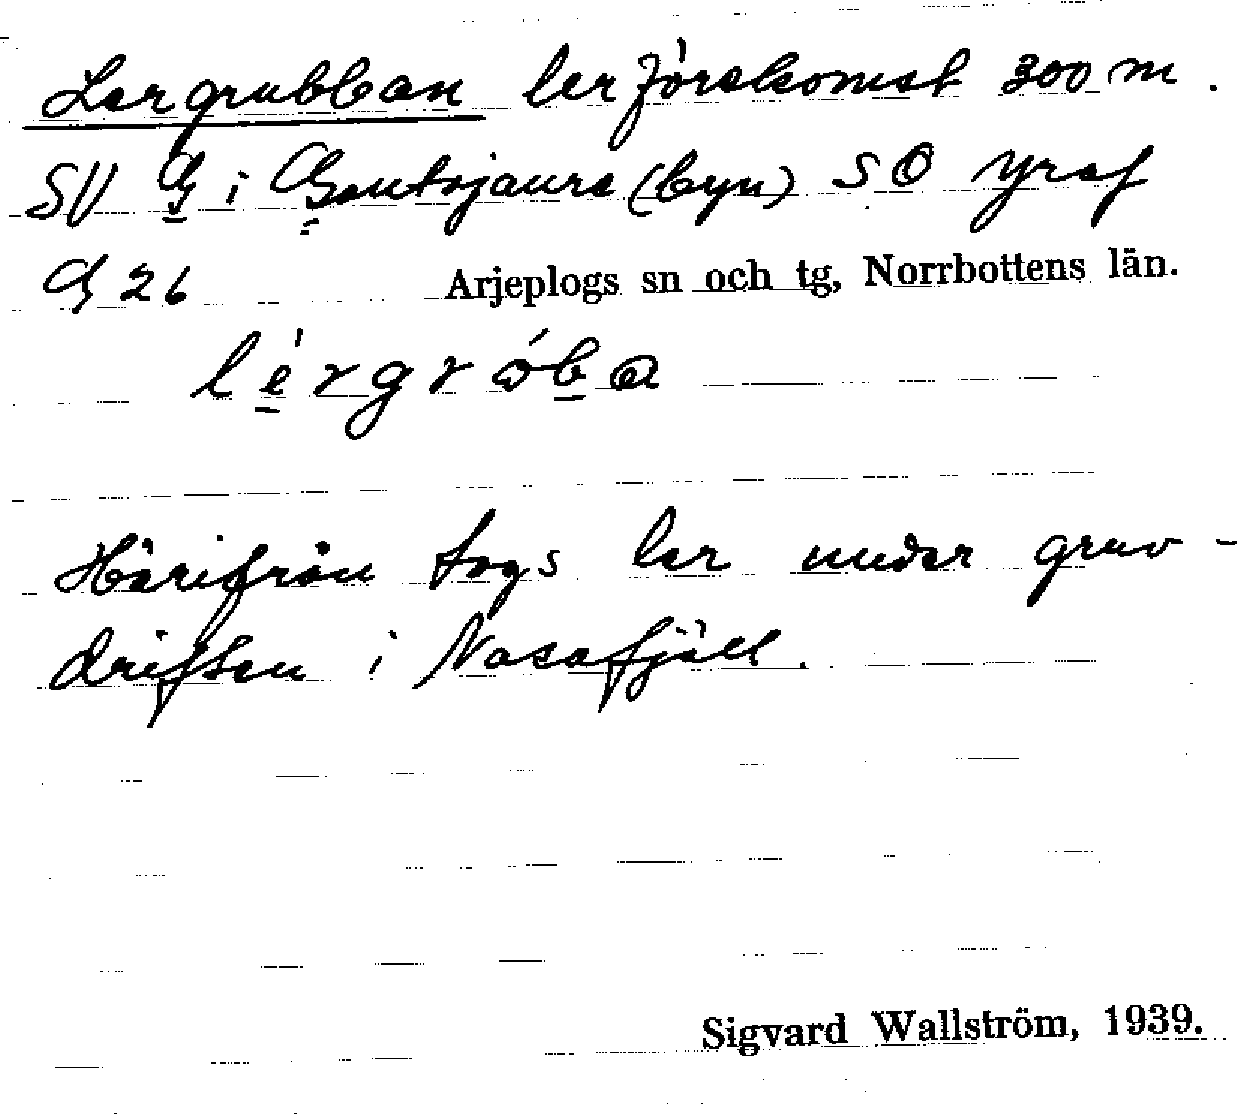 Lergrubban lerförekomst 300 m.
SV G i Gautojaure (byn) SO
G 26 Arjeplogs sn och tg, Norrbottens län.
lérgróba
Härifrån togs ler under gruv-
driften i Nasafjäll.
Sigvard Wallström, 1939.